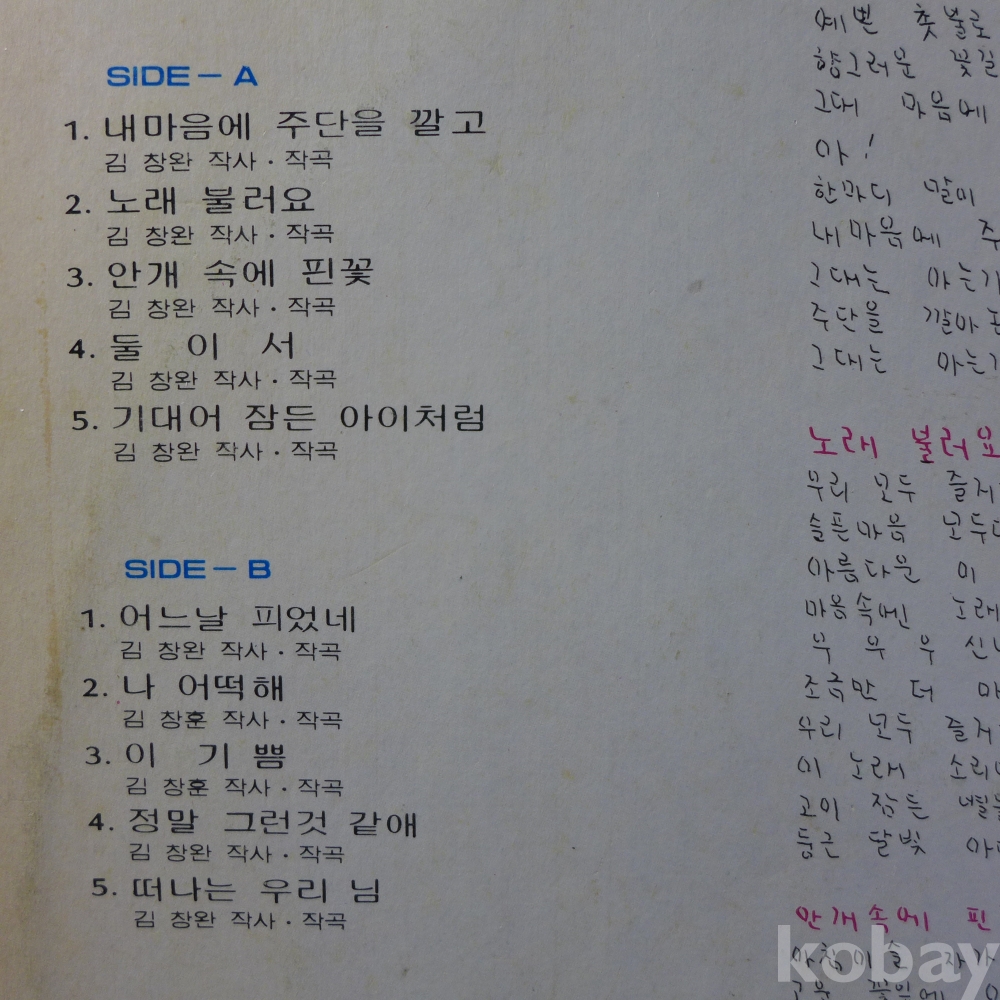 SIDE – A
1. 내마음에 주단을 깔고
김 창완 작사 · 작곡
2. 노래 불러요
김 창완 작사 · 작곡
3. 안개 속에 핀꽃
김 창완 작사 · 작곡
4. 둘 이 서
김 창완 작사 · 작곡
5. 기대어 잠든 아이처럼
김 창완 작사 · 작곡
SIDE – B
1. 어느날 피었네
김 창완 작사 · 작곡
2. 나 어떡해
김 창훈 작사 · 작곡
3. 이 기 쁨
김 창훈 작사 · 작곡
4. 정말 그런것 같애
김 창완 작사 · 작곡
5. 떠나는 우리 님
김 창완 작사 · 작곡
예쁜 촛불로
향그러운 꽃길
그대 마음에
아!
한마디 말이
내마음에 주
그대는 아는가
주단을 깔아
그대는 아는가
노래 불러요
우리 모두 즐거
슬픈마음 모두
아름다운 이
마음속엔 노래
우 우 우 신나
조금만 더 마
우리 모두 즐거
이 노래 소리
고이 잠든 별들
둥근 달빛 아
안개속에 핀
아침이슬
kobay